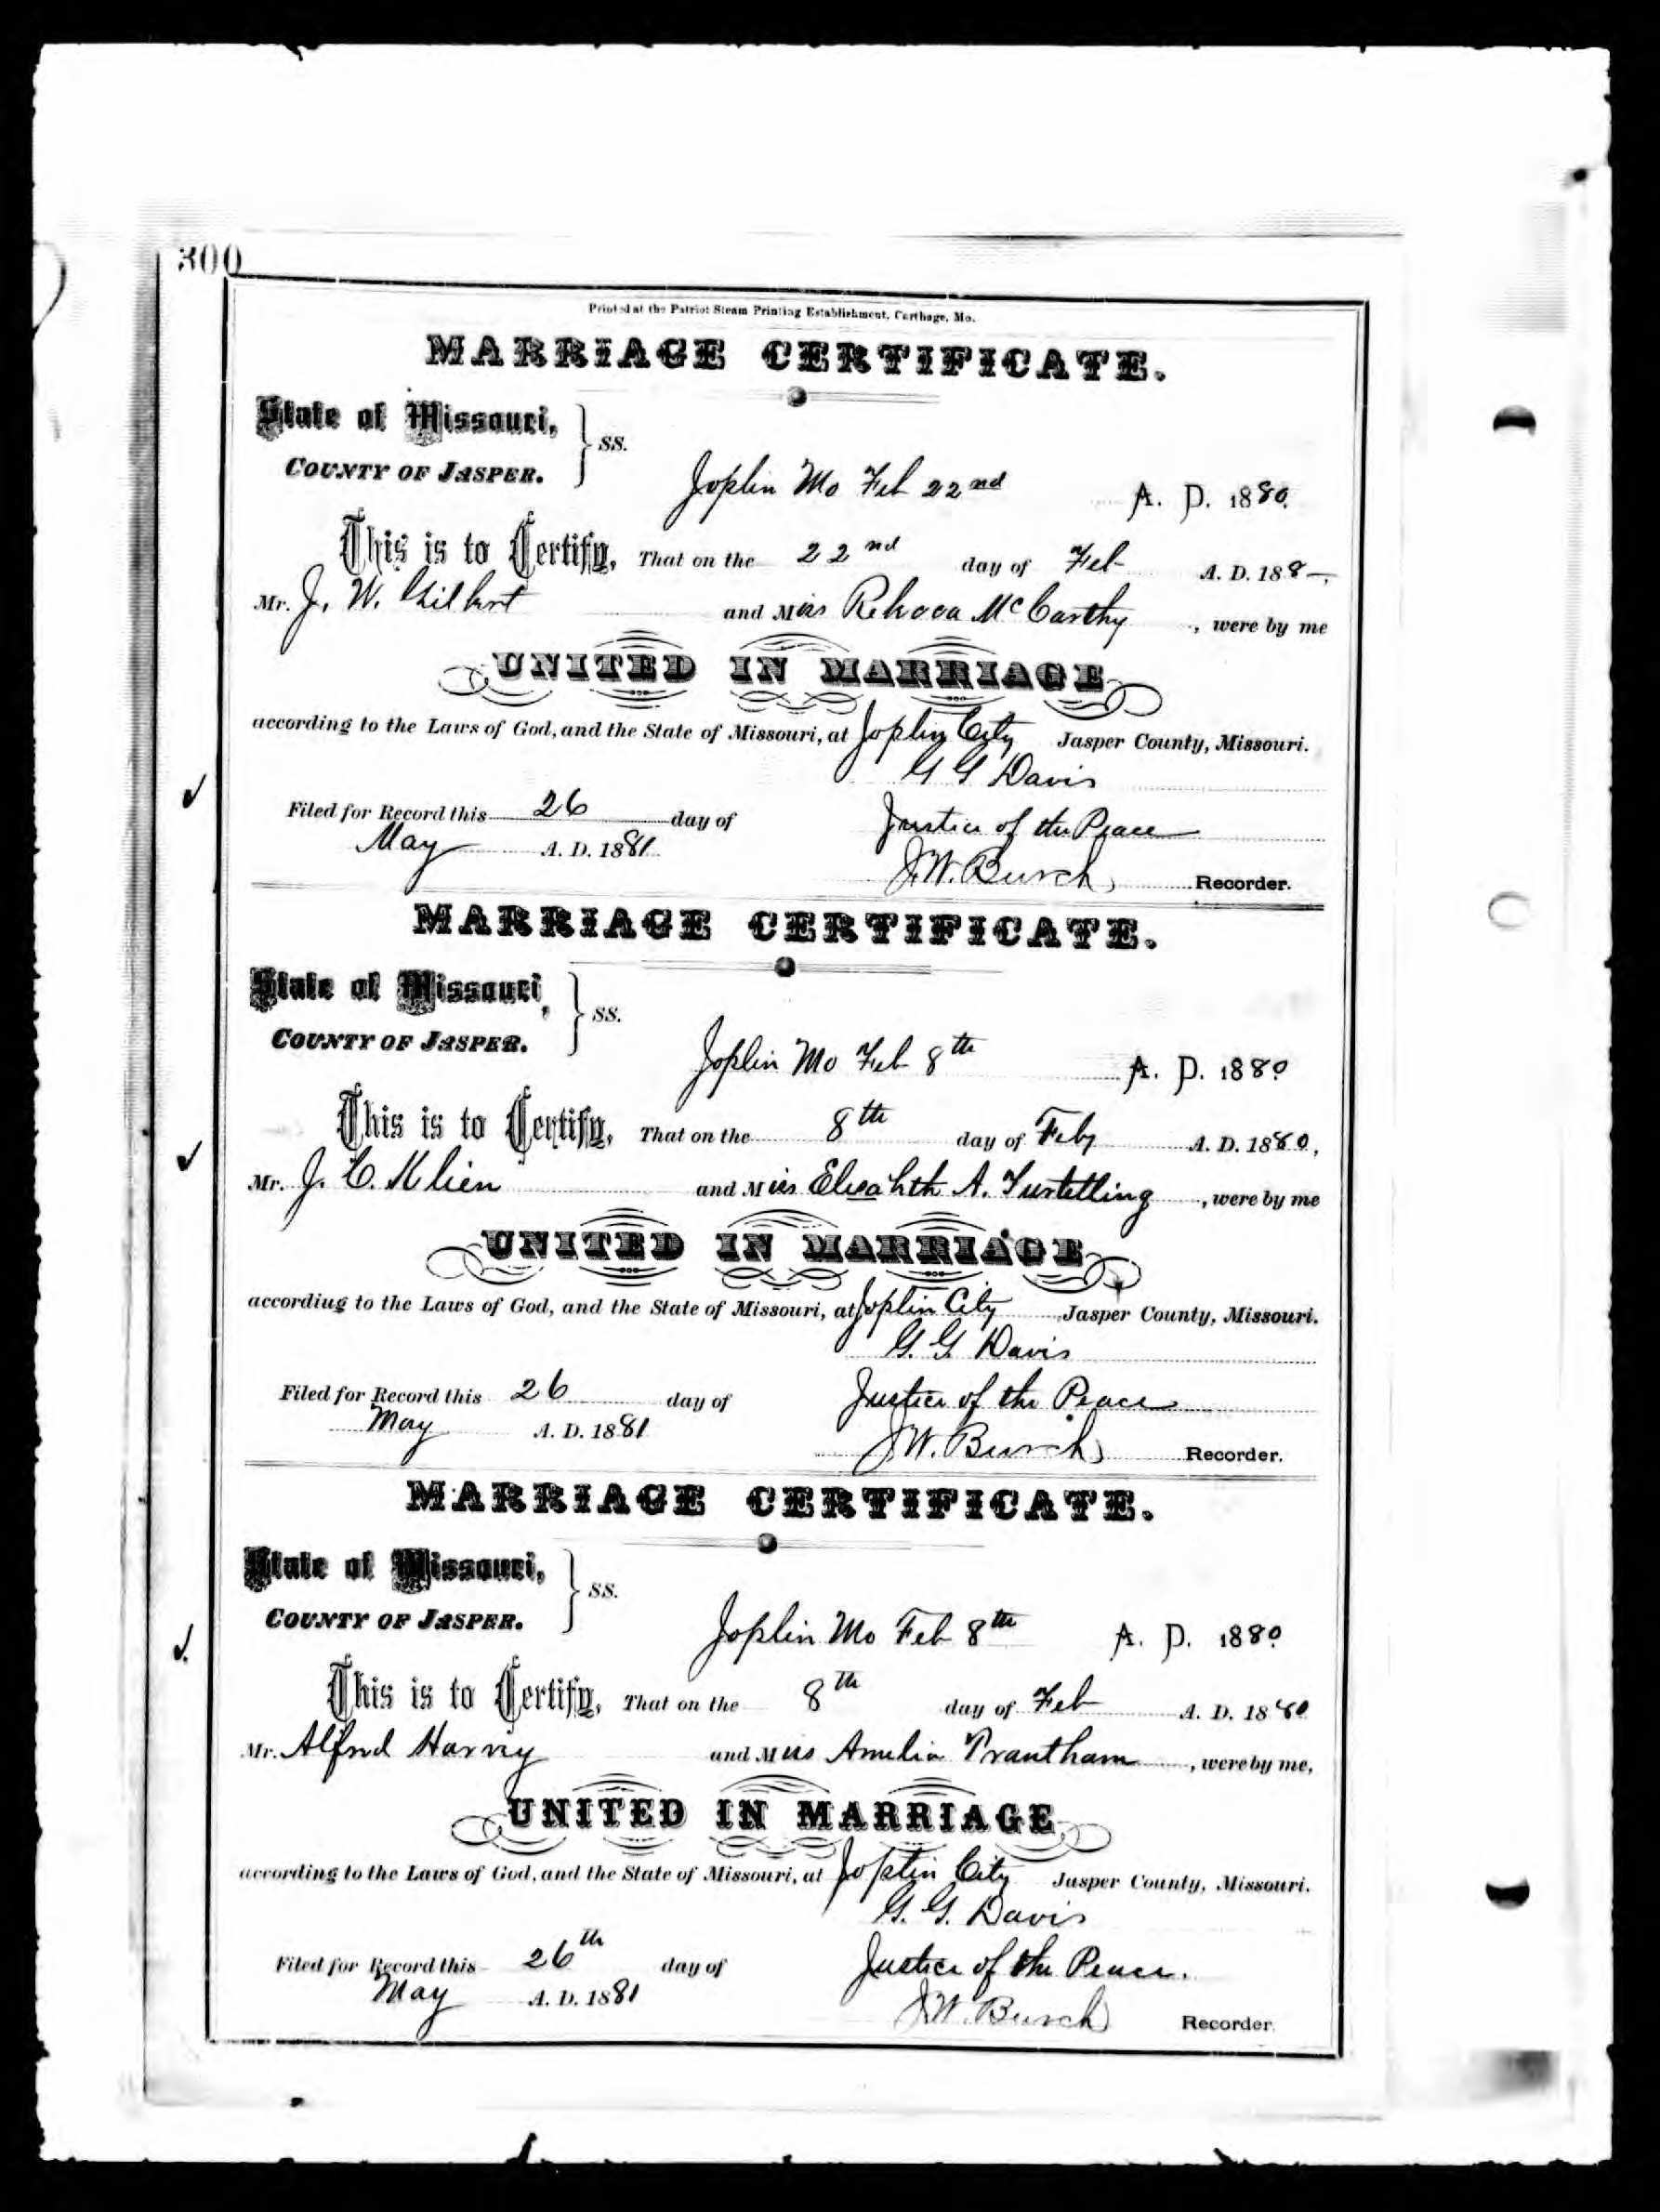 300
Printed at the Patriot Steam Printing Establishment, Carthage, Mo.
MARRIAGE CERTIFICATE.
State of Missouri,
COUNTY OF JASPER. } SS.
Joplin Mo Feb 22nd A. D. 1880.
This is to Certify, That on the 22nd day of Feb A. D. 188–,
Mr. J. W. Gilbert and Miss Rebecca McCarthy, were by me
UNITED IN MARRIAGE
according to the Laws of God, and the State of Missouri, at Joplin City Jasper County, Missouri.
G G Davis
Filed for Record this 26 day of Justice of the Peace
May A. D. 1881. J. W. Burch, Recorder.
MARRIAGE CERTIFICATE.
State of Missouri,
COUNTY OF JASPER. } SS.
Joplin Mo Feb 8th A. D. 1880
This is to Certify, That on the 8th day of Feby A. D. 1880,
Mr. J. C. Klien and Miss Elisabeth A. Turtelling, were by me
UNITED IN MARRIAGE
according to the Laws of God, and the State of Missouri, at Joplin City Jasper County, Missouri.
G. G. Davis
Filed for Record this 26 day of Justice of the Peace
May A. D. 1881 J. W. Burch Recorder.
MARRIAGE CERTIFICATE.
State of Missouri,
COUNTY OF JASPER. } SS.
Joplin Mo Feb 8th A. D. 1880
This is to Certify, That on the 8th day of Feb A. D. 1880
Mr. Alfred Harvey and Miss Amelia Trantham, were by me,
UNITED IN MARRIAGE
according to the Laws of God, and the State of Missouri, at Joplin City Jasper County, Missouri.
G. G. Davis
Filed for Record this 26th day of Justice of the Peace.
May A. D. 1881 J. W. Burch Recorder.